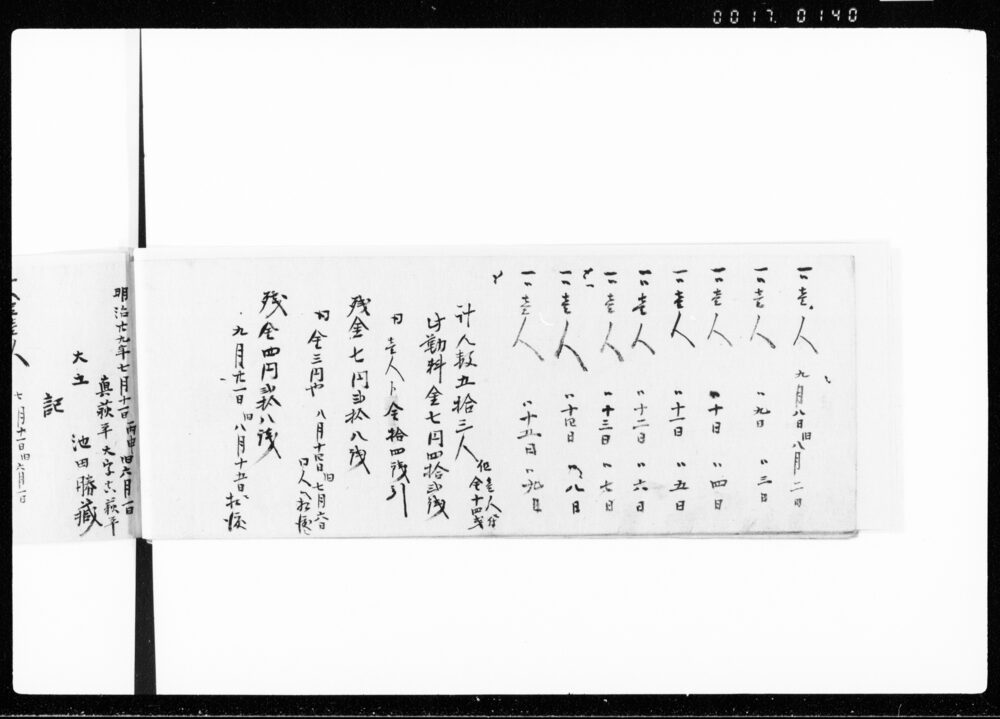 0017.0140
一 壱人 九月八日旧八月二日
一 壱人 〃九日 〃三日
一 壱人 〃十日 〃四日
一 壱人 〃十一日 〃五日
一 壱人 〃十二日 〃六日
一 壱人 〃十三日 〃七日
一 壱人 〃十四日 〃八日
一 壱人 〃十五日 〃九日
計人数五拾三人 但壱人ニ付金十四銭
此勤料金七円四拾弐銭
内 壱人ト金拾四銭引
残金七円弐拾八銭
内金三円也 八月十四日旧七月六日
残金四円弐拾八銭
九月廿一日旧八月十五日払済
明治廿九年七月十一日 丙申旧六月一日
真萩平大字真萩平
大工 池田勝蔵
記
七月十一日旧六月一日